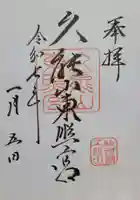 奉拝
久能山東照宮
令和七年
一月五日